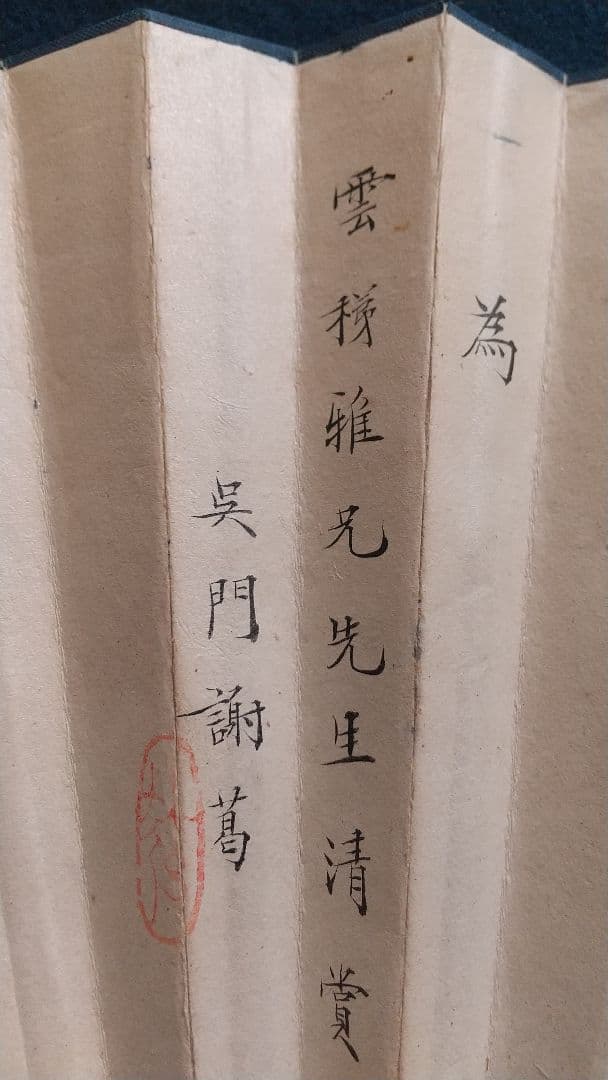 為
雲梯雅兄先生清賞
吳門謝葛